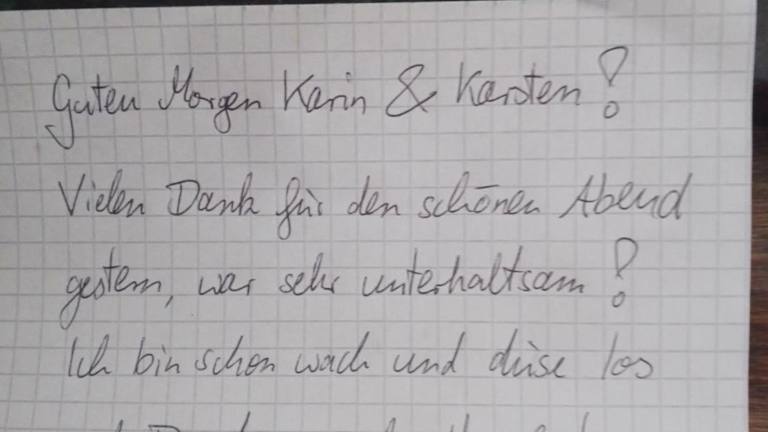 Guten Morgen Karin & Karsten!
Vielen Dank für den schönen Abend
gestern, war sehr unterhaltsam!
Ich bin schon wach und düse los